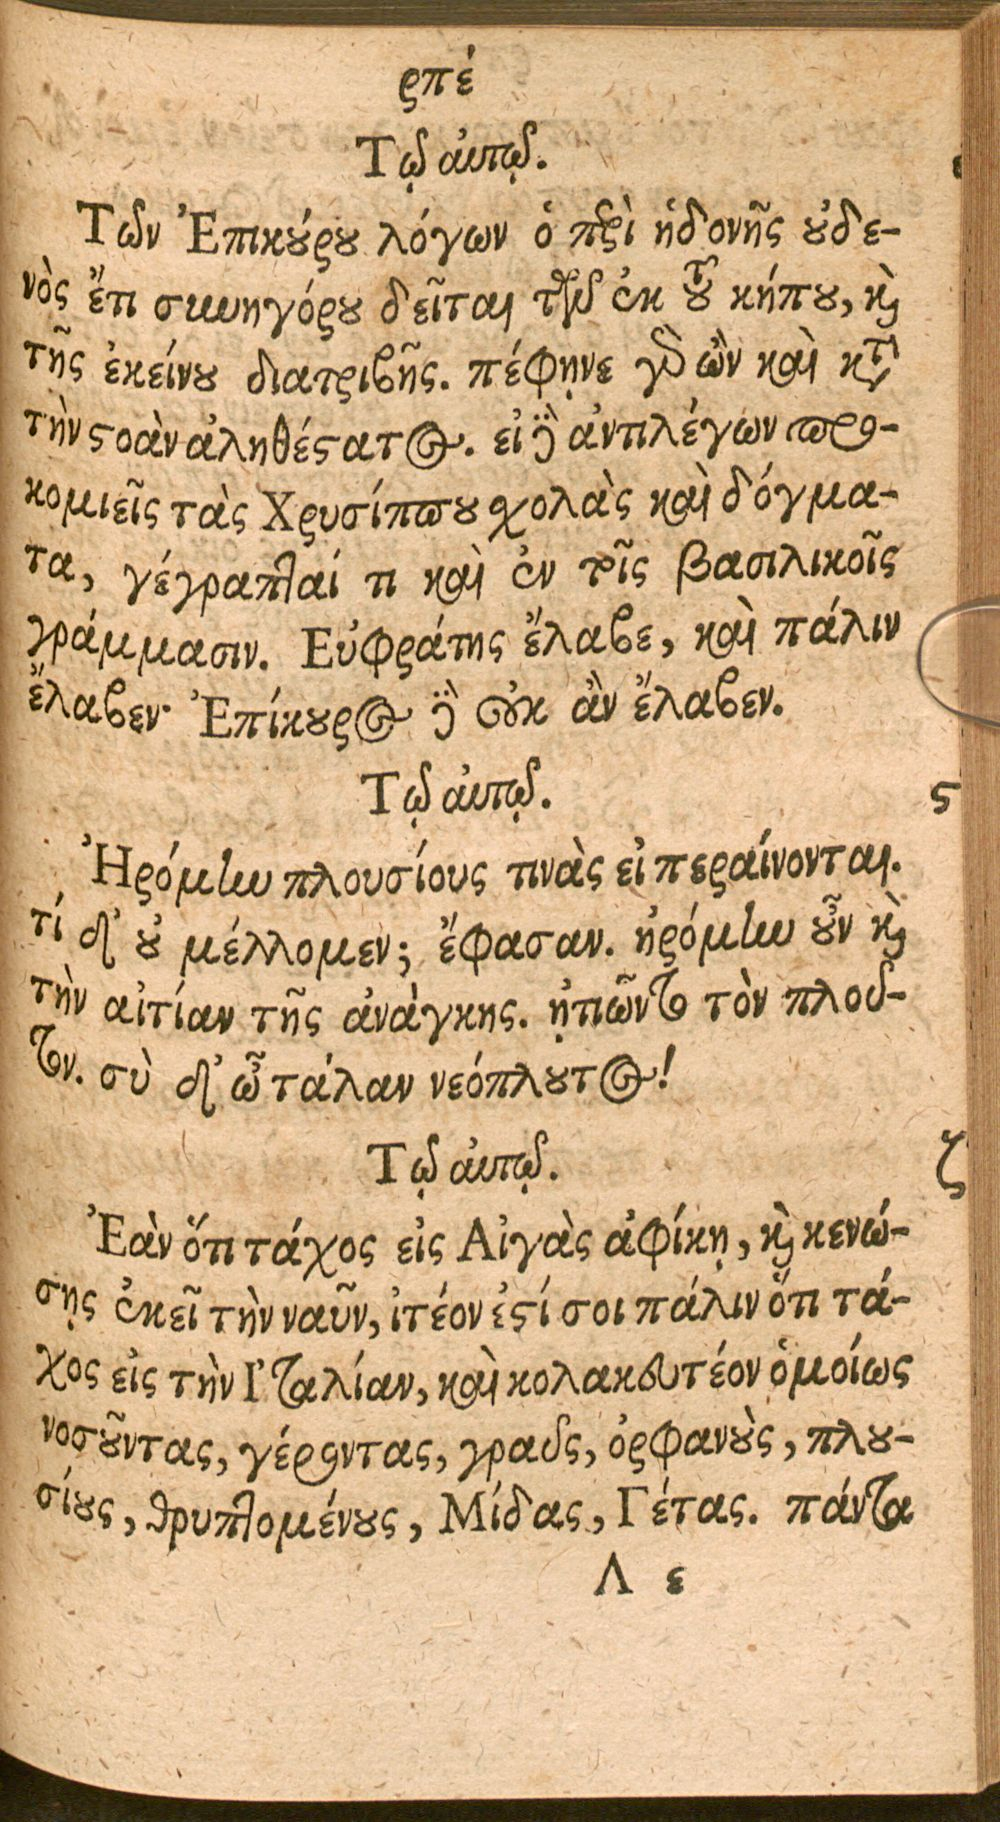 ϛπέ
Τῷ αὐτῷ.
Τῶν Ἐπικούρου λόγων ὁ περὶ ἡδονῆς οὐδε-
νὸς ἔτι συνηγόρου δεῖται τῶν ἐκ τοῦ κήπου, καὶ
τῆς ἐκείνου διατριβῆς. πέφηνε γὰρ ὢν καὶ κατὰ
τὴν στοὰν ἀληθέστατος. εἰ δὲ ἀντιλέγων προ-
κομιεῖς τὰς Χρυσίππου σχολὰς καὶ δόγμα-
τα, γέγραπταί τι καὶ ἐν τοῖς βασιλικοῖς
γράμμασιν. Εὐφράτης ἔλαβε, καὶ πάλιν
ἔλαβεν· Ἐπίκουρος δὲ οὐκ ἂν ἔλαβεν.
Τῷ αὐτῷ.
ς
Ἠρόμην πλουσίους τινὰς εἰ περαίνονται.
τί δ' οὐ μέλλομεν; ἔφασαν. ἠρόμην οὖν καὶ
τὴν αἰτίαν τῆς ἀνάγκης. ᾐτιῶντο τὸν πλοῦ-
τον. σὺ δ' ὦ τάλαν νεόπλουτος!
Τῷ αὐτῷ.
ζ
Ἐὰν ὅτι τάχος εἰς Αἰγὰς ἀφίκῃ, καὶ κενώ-
σῃς ἐκεῖ τὴν ναῦν, ἰτέον ἐστί σοι πάλιν ὅτι τά-
χος εἰς τὴν Ἰταλίαν, καὶ κολακευτέον ὁμοίως
νοσοῦντας, γέροντας, γραῦς, ὀρφανοὺς, πλου-
σίους, θρυπτομένους, Μίδας, Γέτας. πάντα
Λ ε